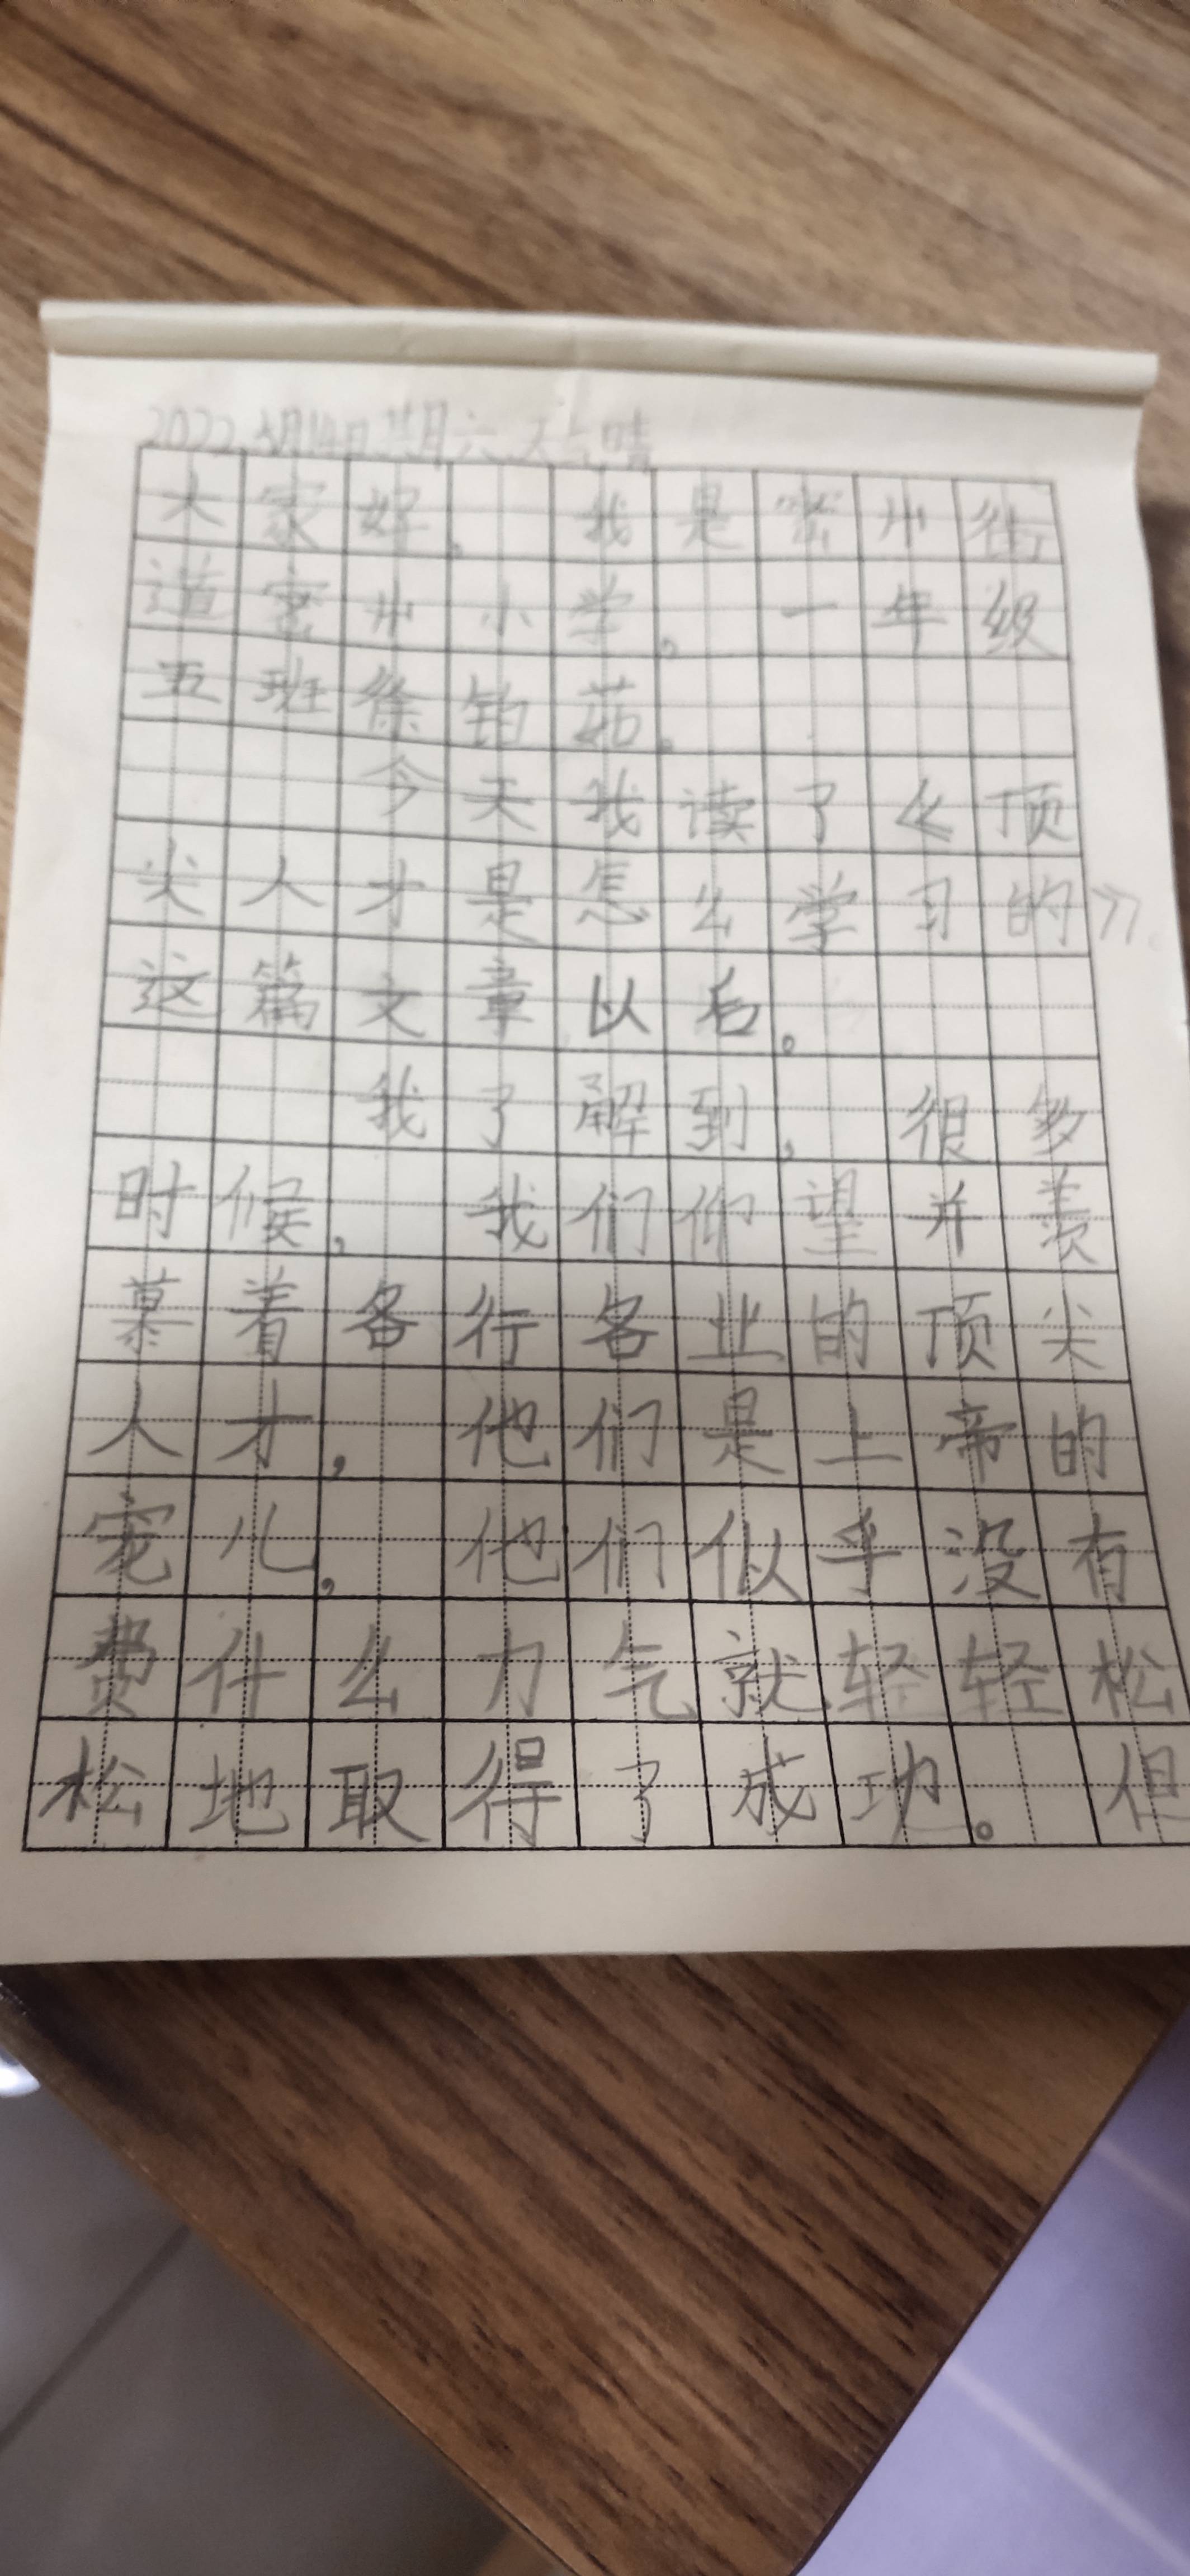 2022.5月14日.星期六.天气晴
大家好。我是密州街
道密州小学。一年级
五班徐铂茹。
今天我读了《顶
尖人才是怎么学习的》。
这篇文章以后。
我了解到，很多
时候，我们仰望并羡
慕着各行各业的顶尖
人才，他们是上帝的
宠儿，他们似乎没有
费什么力气就轻轻松
松地取得了成功。但